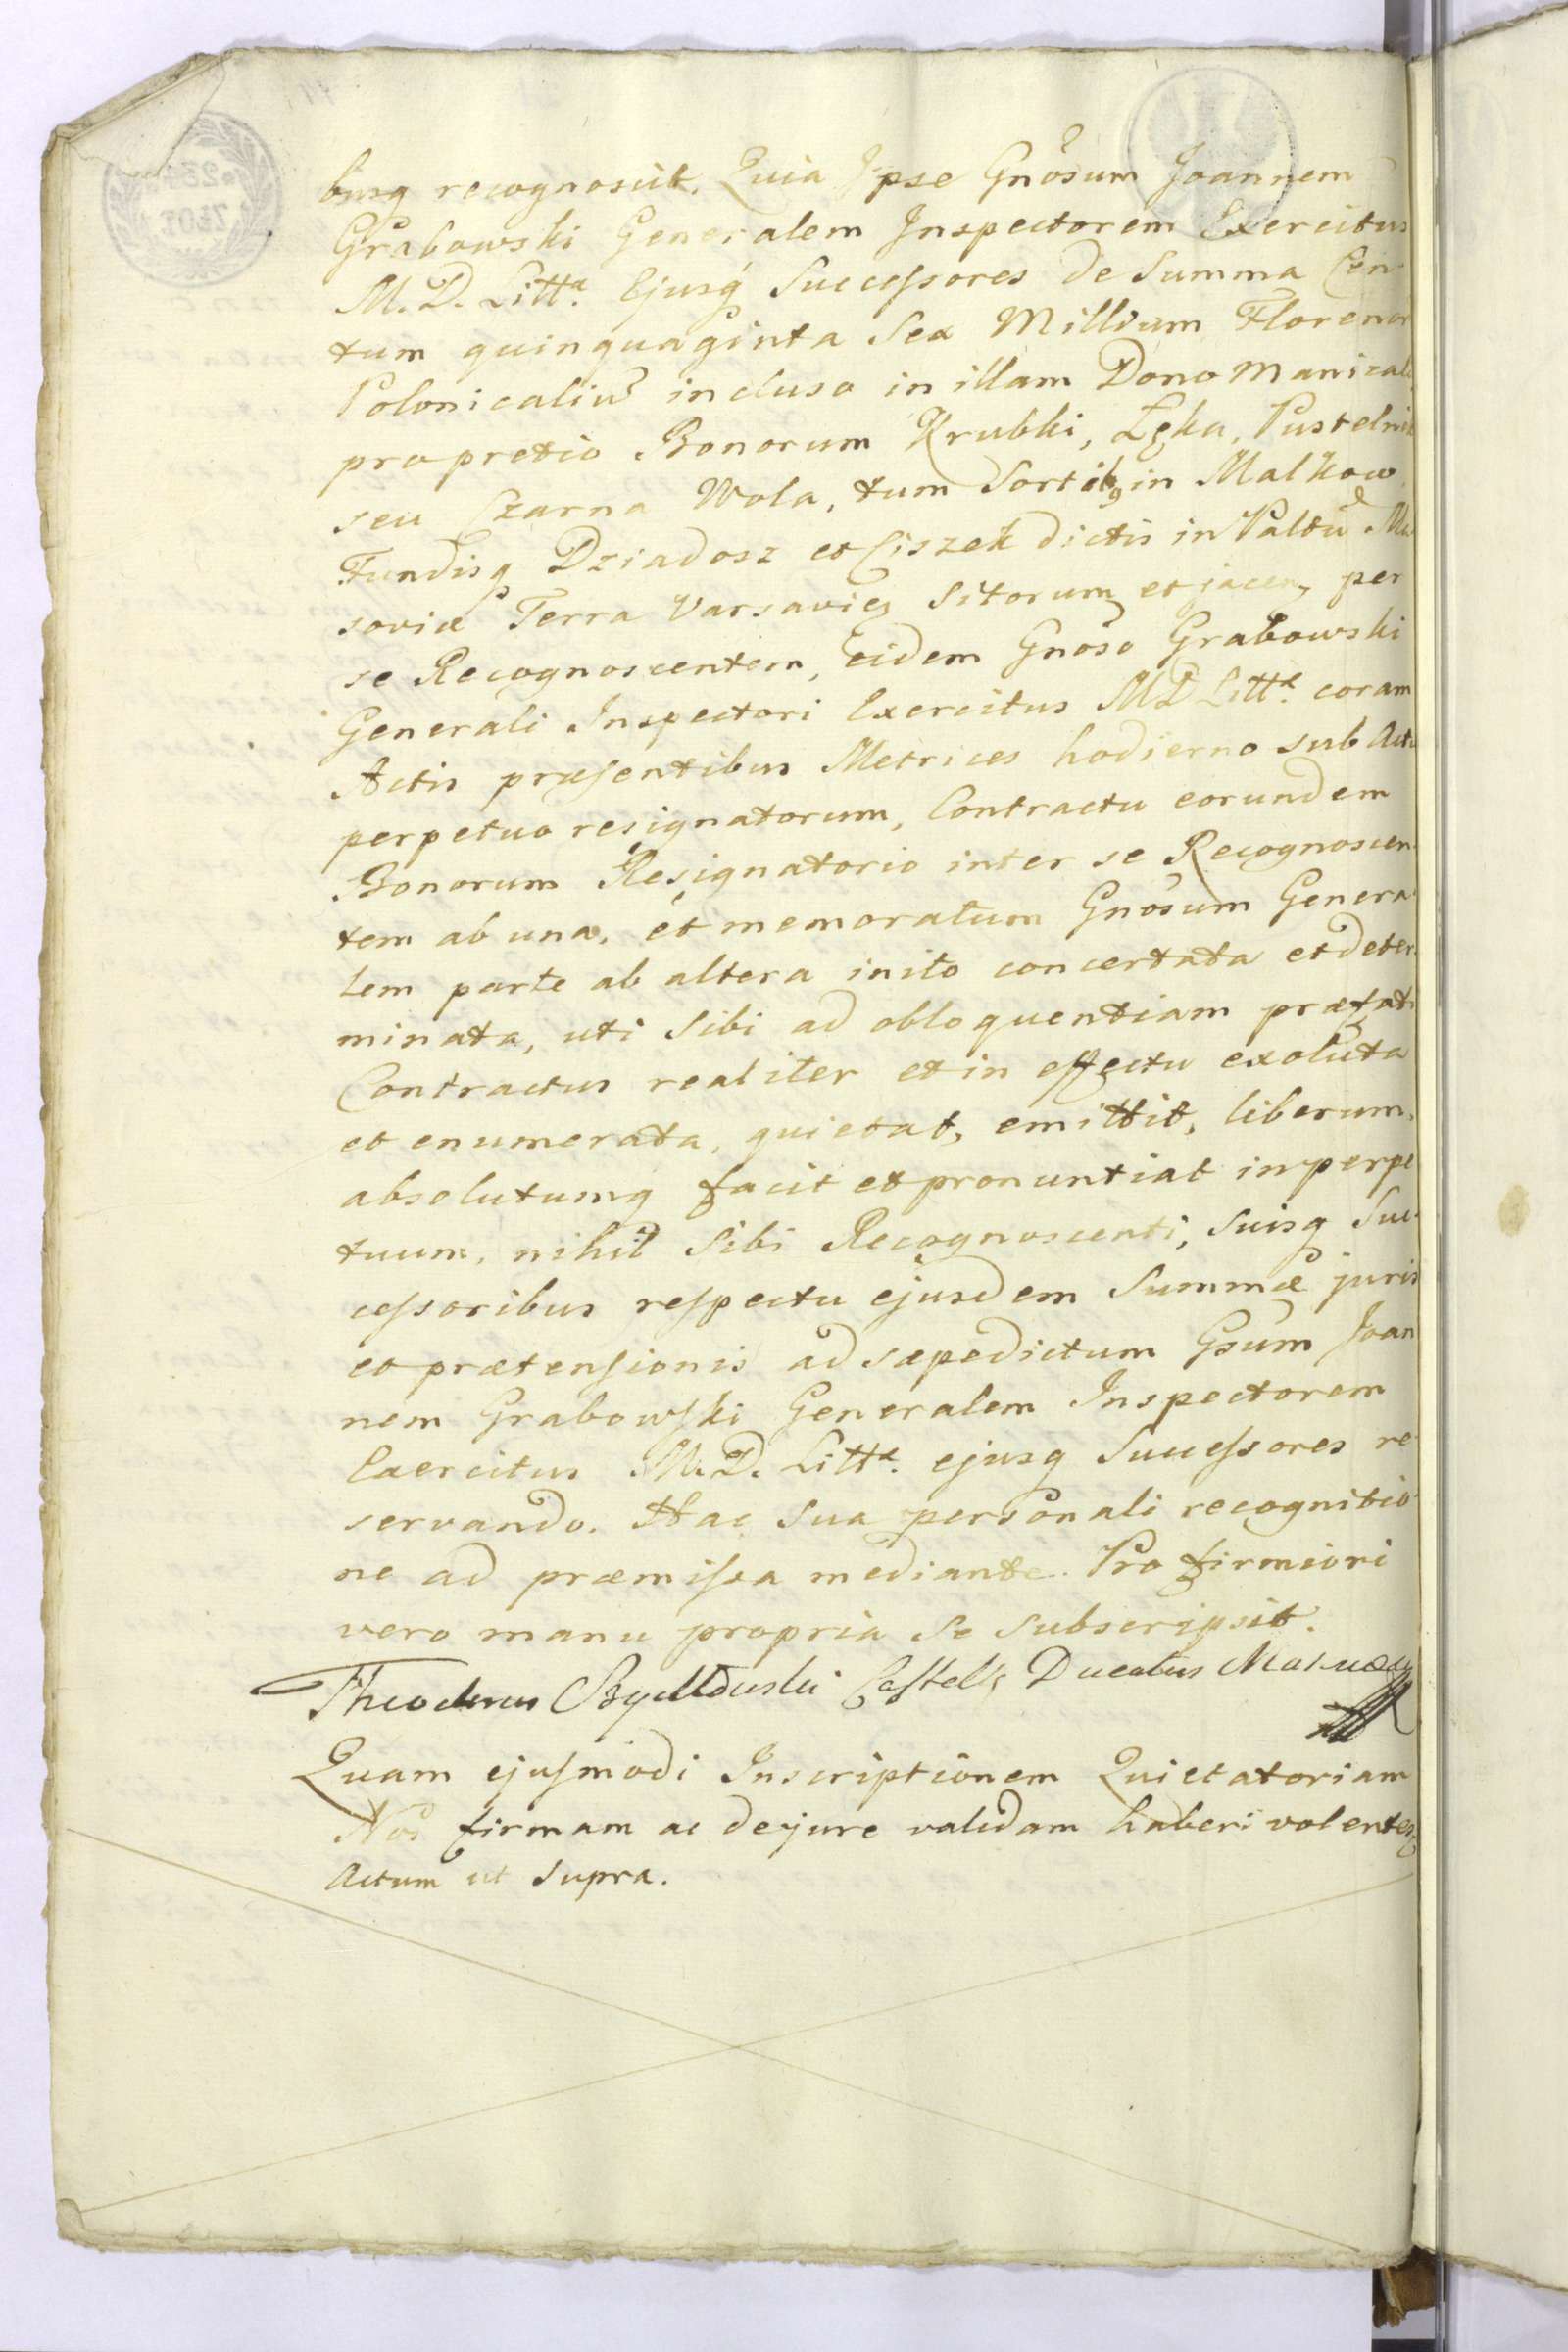 busq recognoscit. Quia Ipse Gnosum Joannem
Grabowski Generalem Inspectorem Exercitus
M. D. Littæ. Ejusq Successores de Summa Cen
tum quinquaginta Sex Millium Florenor
Polonicaliũ inclusa in illam Dono Manical
pro pretio Bonorum Krubki, Lęka, Pustelnik
seu Czarna Wola, tum Sortibg in Malkow
Fundisq Dziadosz et Ciszek dictis in Paltũ Ma
soviæ Terra Varsavieg Sitorum et jacen, per
se Recognoscentem, eidem Gnoso Grabowski
Generali Inspectori Exercitus MD Littæ. coram
Actis præsentibus Metrices hodierno sub Actu
perpetuo resignatorum, Contractu eorundem
Bonorum Resignatorio inter se Recognoscen
tem ab una, et memoratum Gnosum Genera
lem parte ab altera inito concertata et deter
minata, uti Sibi ad obloquentiam præfati
Contractus realiter et in effectu exoluta
et enumerata, quietat, emittit, liberum,
absolutumq facit et pronuntiat in perpe
tuum, nihil Sibi Recognoscenti, Suisq Suc
cessoribus respectu ejusdem Summæ juris
et prætensionis ad sæpedictum Gsum Joan
nem Grabowski Generalem Inspectorem
Exercitus M. D. Littæ. ejusq Successores re
servando. Hac Sua personali recognitio
ne ad præmissa mediante. Pro firmiori
vero manu propria Se Subscripsit.
Theodorus Szydłowski Castells Ducatus Masoviæ
Quam ejusmodi Inscriptionem Quietatoriam
Nos firmam ac de jure validam haberi volentes
Actum ut Supra.